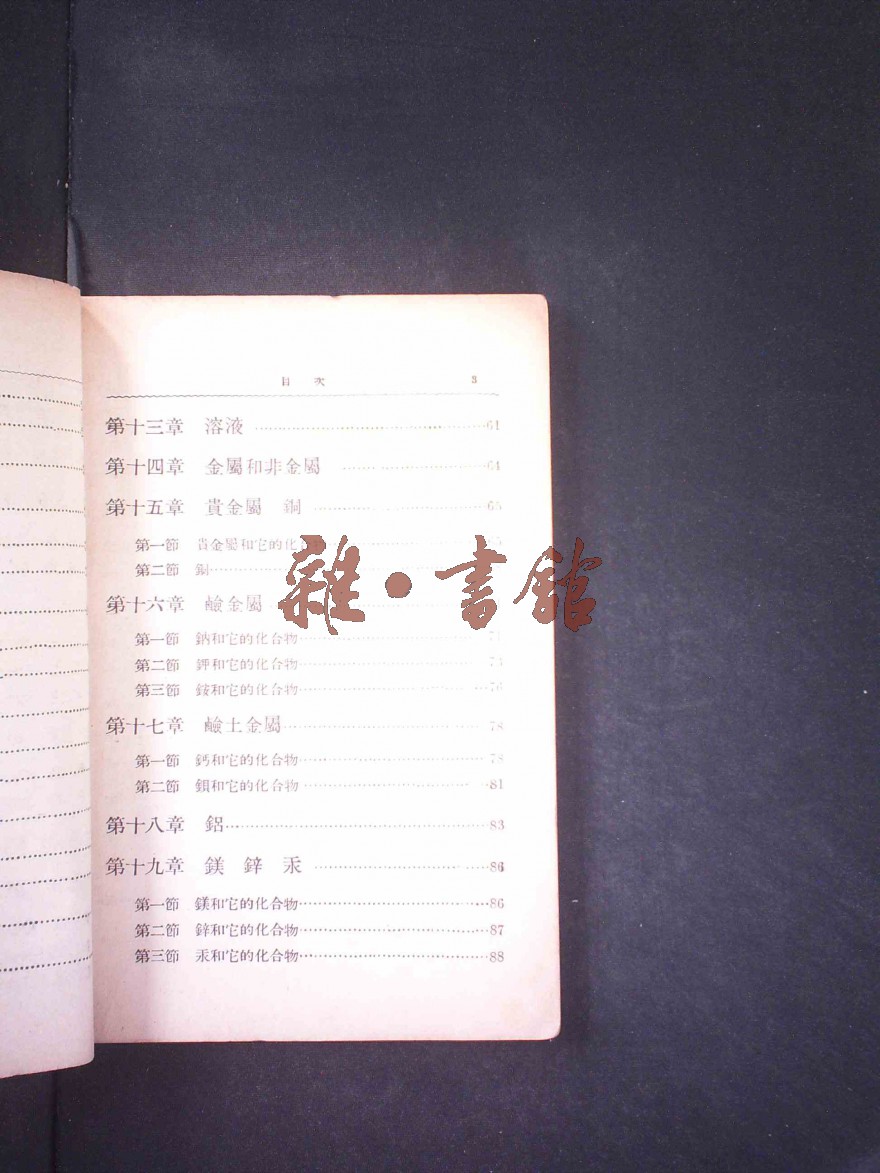 目 次 3
第十三章 溶液 61
第十四章 金屬和非金屬 64
第十五章 貴金屬 銅 65
第一節 貴金屬和它的化合物
第二節 銅
第十六章 鹼金屬
第一節 鈉和它的化合物 71
第二節 鉀和它的化合物 74
第三節 銨和它的化合物 76
第十七章 鹼土金屬 78
第一節 鈣和它的化合物 78
第二節 鋇和它的化合物 81
第十八章 鋁 83
第十九章 鎂 鋅 汞 86
第一節 鎂和它的化合物 86
第二節 鋅和它的化合物 87
第三節 汞和它的化合物 88
雜·書館